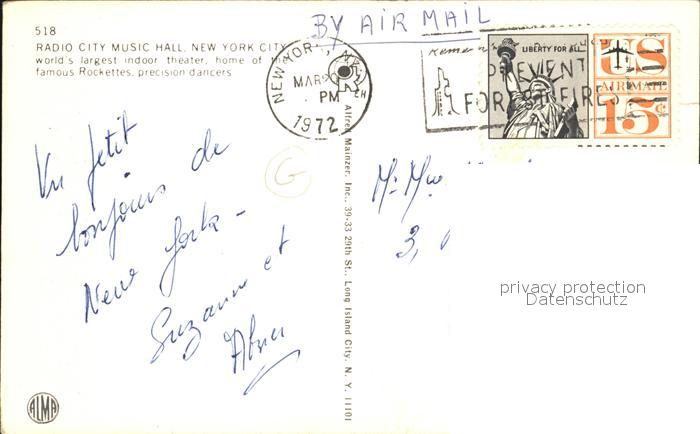 518
RADIO CITY MUSIC HALL, NEW YORK CITY
world's largest indoor theater, home of the
famous Rockettes, precision dancers
BY AIR MAIL
NEW YORK, N.Y.
MAR 20
PM
1972
PREVENT
FOREST FIRES
LIBERTY FOR ALL
US
AIR MAIL
15¢
Un petit
bonjour de
New York -
Suzanne et
G
Alfred Mainzer, Inc., 39-33 29th St., Long Island City, N. Y. 11101
Mr Mme
3,
privacy protection
Datenschutz
ALMA